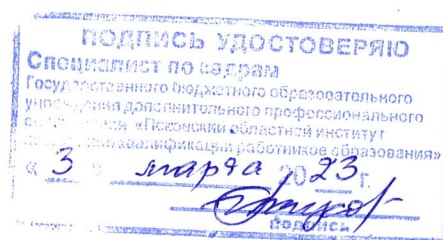 ПОДПИСЬ УДОСТОВЕРЯЮ
Специалист по кадрам
Государственного бюджетного образовательного
учреждения дополнительного профессионального
«Псковский областной институт
квалификации работников образования»
« 3 » марта 2023 г.
подпись